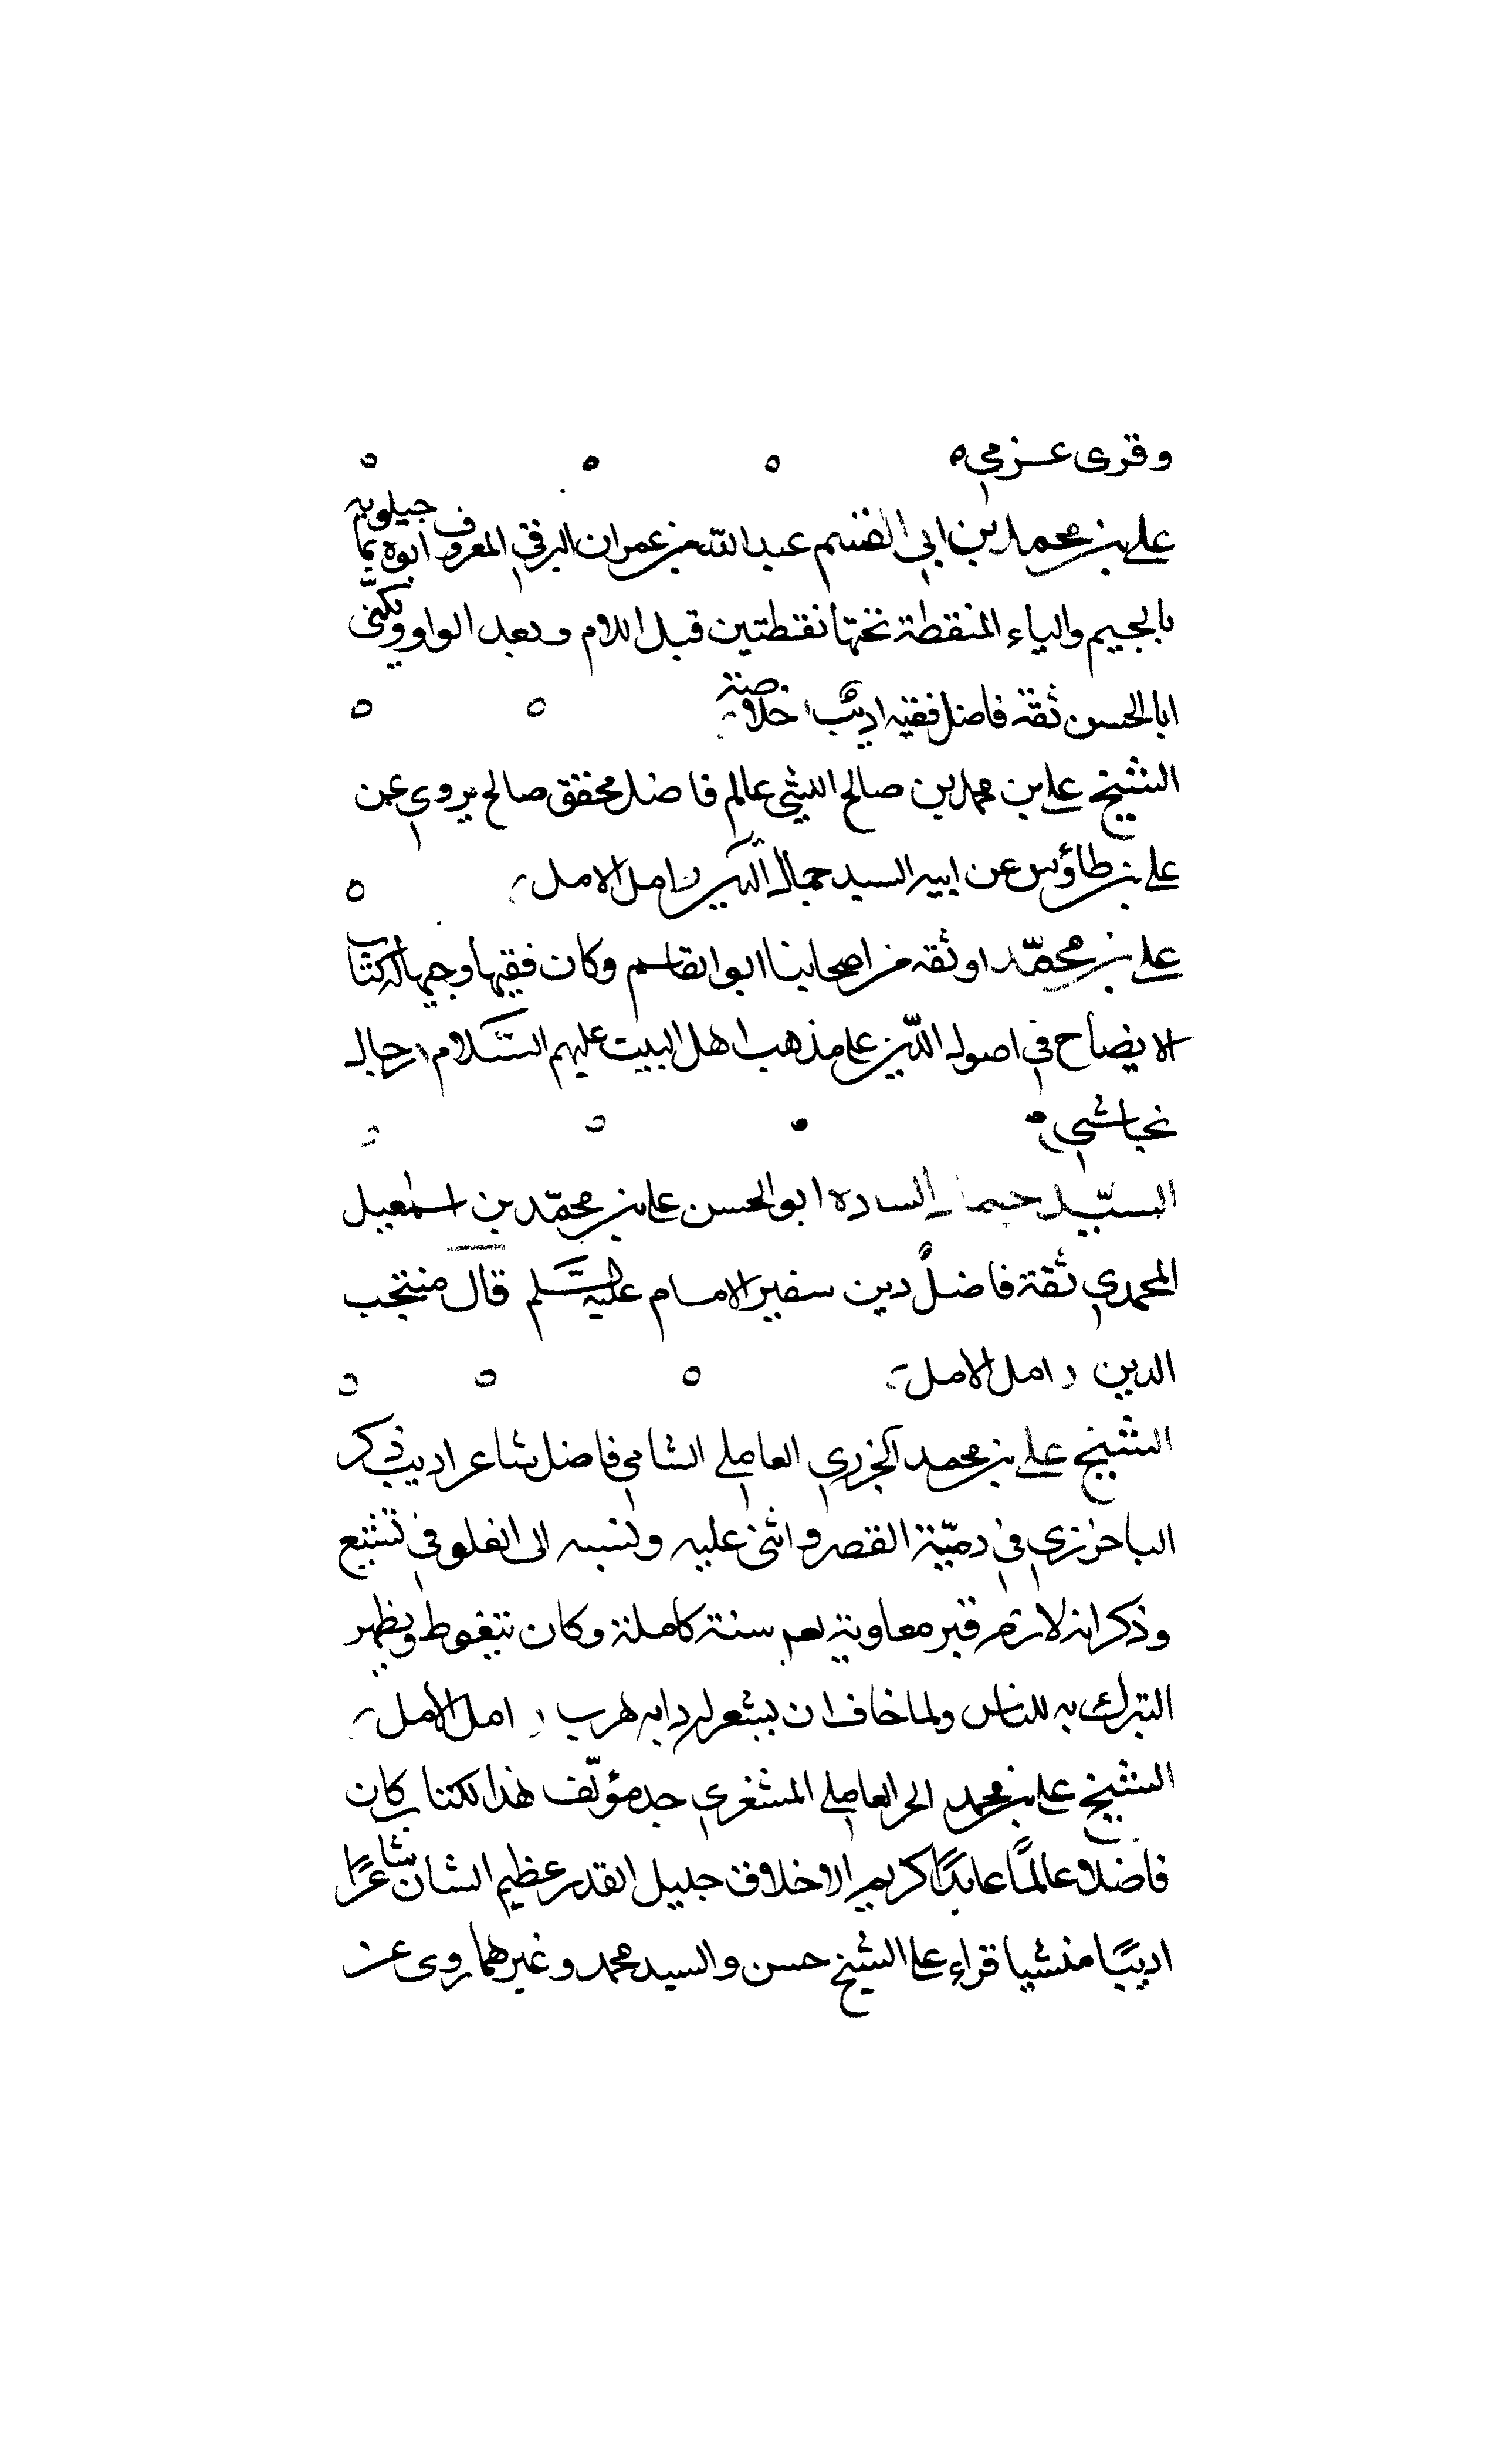 وقرى عزمي
علي بن محمد بن ابي القسم عبد الله بن عمران البرقي المعروف ابوه بما جيلويه
بالجيم والياء المنقطة تحتها نقطتين قبل اللام وبعد الواو ويكنّى
ابا الحسن ثقة فاضل فقيه اديب خلاصة
الشيخ علي بن محمد بن صالح الليثي عالم فاضل محقق صالح يروي عن
علي بن طاؤس عن ابيه السيد جمال الدين امل الامل
علي بن محمّد ثقه من اصحابنا ابو القاسم وكان فقيها وجيها له كتاب
الايضاح في اصول الدّين على مذهب اهل البيت عليهم السّلام رجال
نجاشي
السيّد جمال الساده ابو الحسن علي بن محمّد بن اسمعيل
المحمدي ثقة فاضلٌ دين سفير الامام عليه السّلم قال منتجب
الدين امل الامل
الشيخ علي بن محمد الخزري العاملي الشامي فاضل شاعر اديب ذكر
الباخرزي في دميّة القصر واثنى عليه ونسبه الى الغلو في تشيع
وذكر انه لازم قبر معاوية سنة كاملة وكان يتغوط ويظهر
التبرك به للناس ولما خاف ان يشعر له دابه هرب امل الامل
الشيخ علي بن محمد الحر العاملي المشغري جد مؤلّف هذا لكتاب كان
فاضلا عالمًا عابدًا كريم الاخلاق جليل القدر عظيم الشان شاعرًا
اديبًا منشيا قراء على الشيخ حسن والسيد محمد وغيرهما روى عن